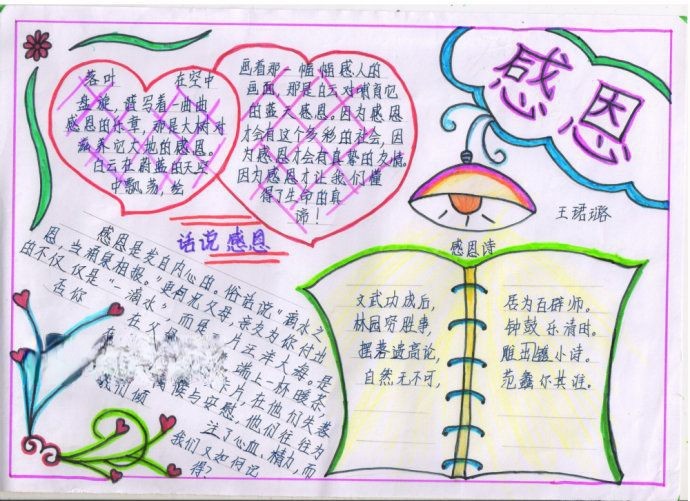 感恩
王珺璐
落叶 在空中
盘旋，谱写着一曲曲
感恩的乐章，那是大树对
滋养它大地的感恩。
白云在蔚蓝的天空
中飘荡，绘
画着那一幅幅感人的
画面，那是白云对哺育它
的蓝天感恩。因为感恩
才会有这个多彩的社会，因
为感恩才会有真挚的友情。
因为感恩才让我们懂
得了生命的真
谛！
话说感恩
感恩是发自内心的。俗话说"滴水之
恩，当涌泉相报。"更何况父母，亲友为你付出
的不仅仅是"一滴水"，而是一片汪洋大海。是
否你 在父母
端上一杯暖茶
卡片，在他们失落
与安慰，他们往往为
我们倾 注了心血、精力，而
我们又如何记
得？
感恩诗
文武功成后，
居为百辟师。
林园穷胜事，
钟鼓乐清时。
摆落遗高论，
雕出小诗。
自然无不可，
范蠡尔其谁。